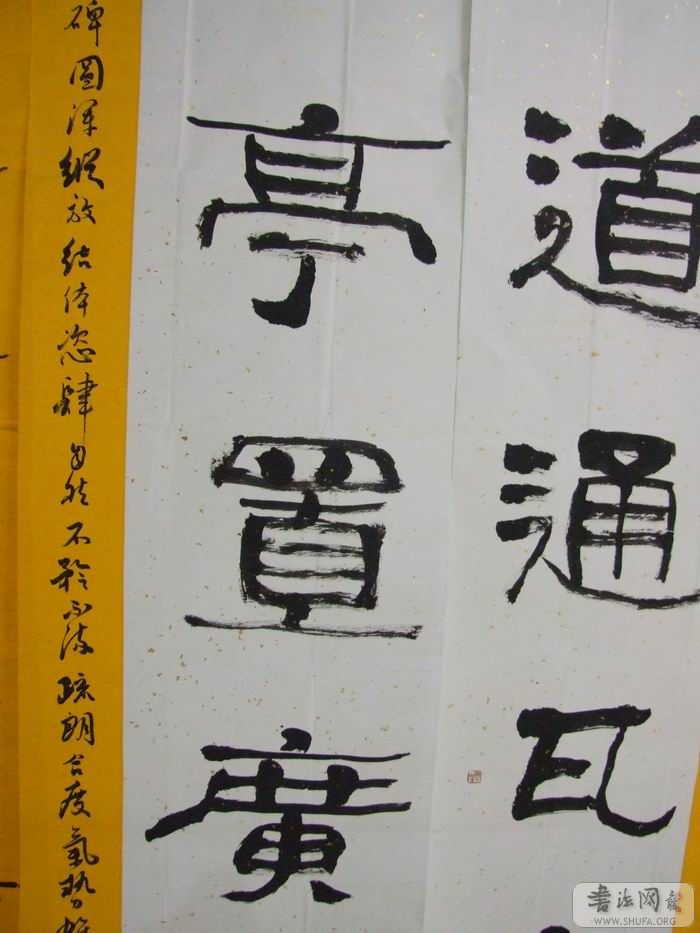 道通瓦
亭置廣
碑圓渾縱放結体恣肆自然不矜不持疏朗合度氣勢
書法网
WWW.SHUFA.ORG